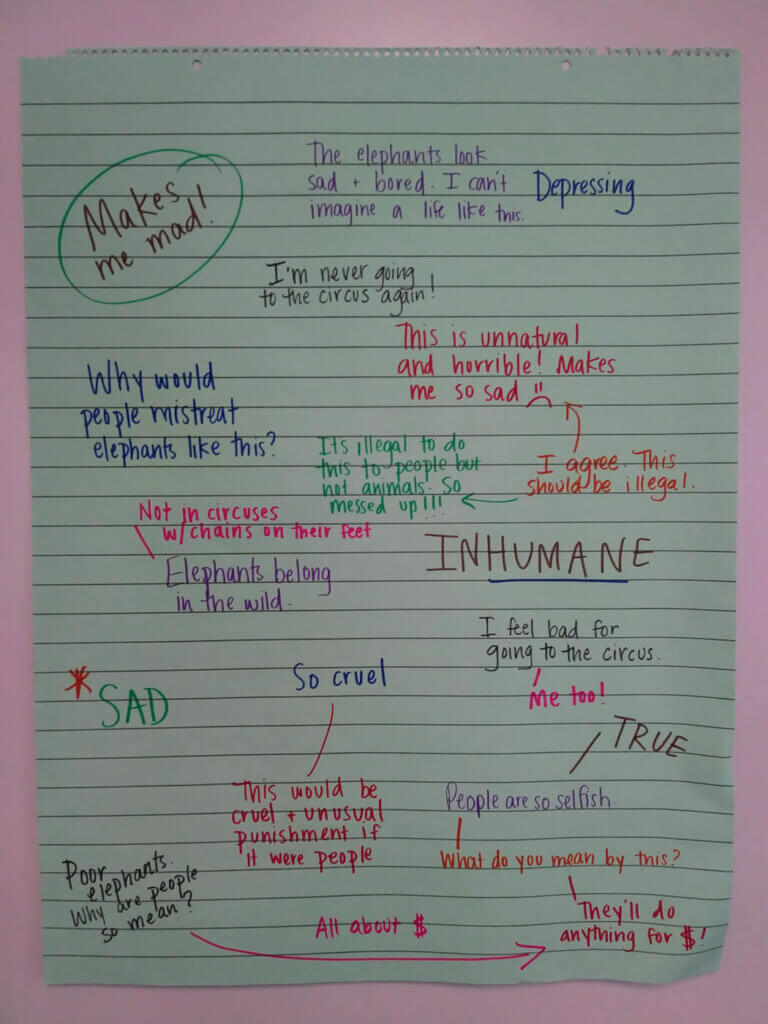 Makes
me mad!
The elephants look
sad + bored. I can't
imagine a life like this.
Depressing
I'm never going
to the circus again!
This is unnatural
and horrible! Makes
me so sad
Why would
people mistreat
elephants like this?
Its illegal to do
this to people but
not animals. So
messed up!!!
I agree. This
should be illegal.
Not in circuses
w/chains on their feet
Elephants belong
in the wild.
INHUMANE
I feel bad for
going to the circus.
Me too!
* SAD
So cruel
This would be
cruel + unusual
punishment if
it were people
TRUE
People are so selfish.
What do you mean by this?
They'll do
anything for $!
Poor
elephants.
Why are people
so mean?
All about $